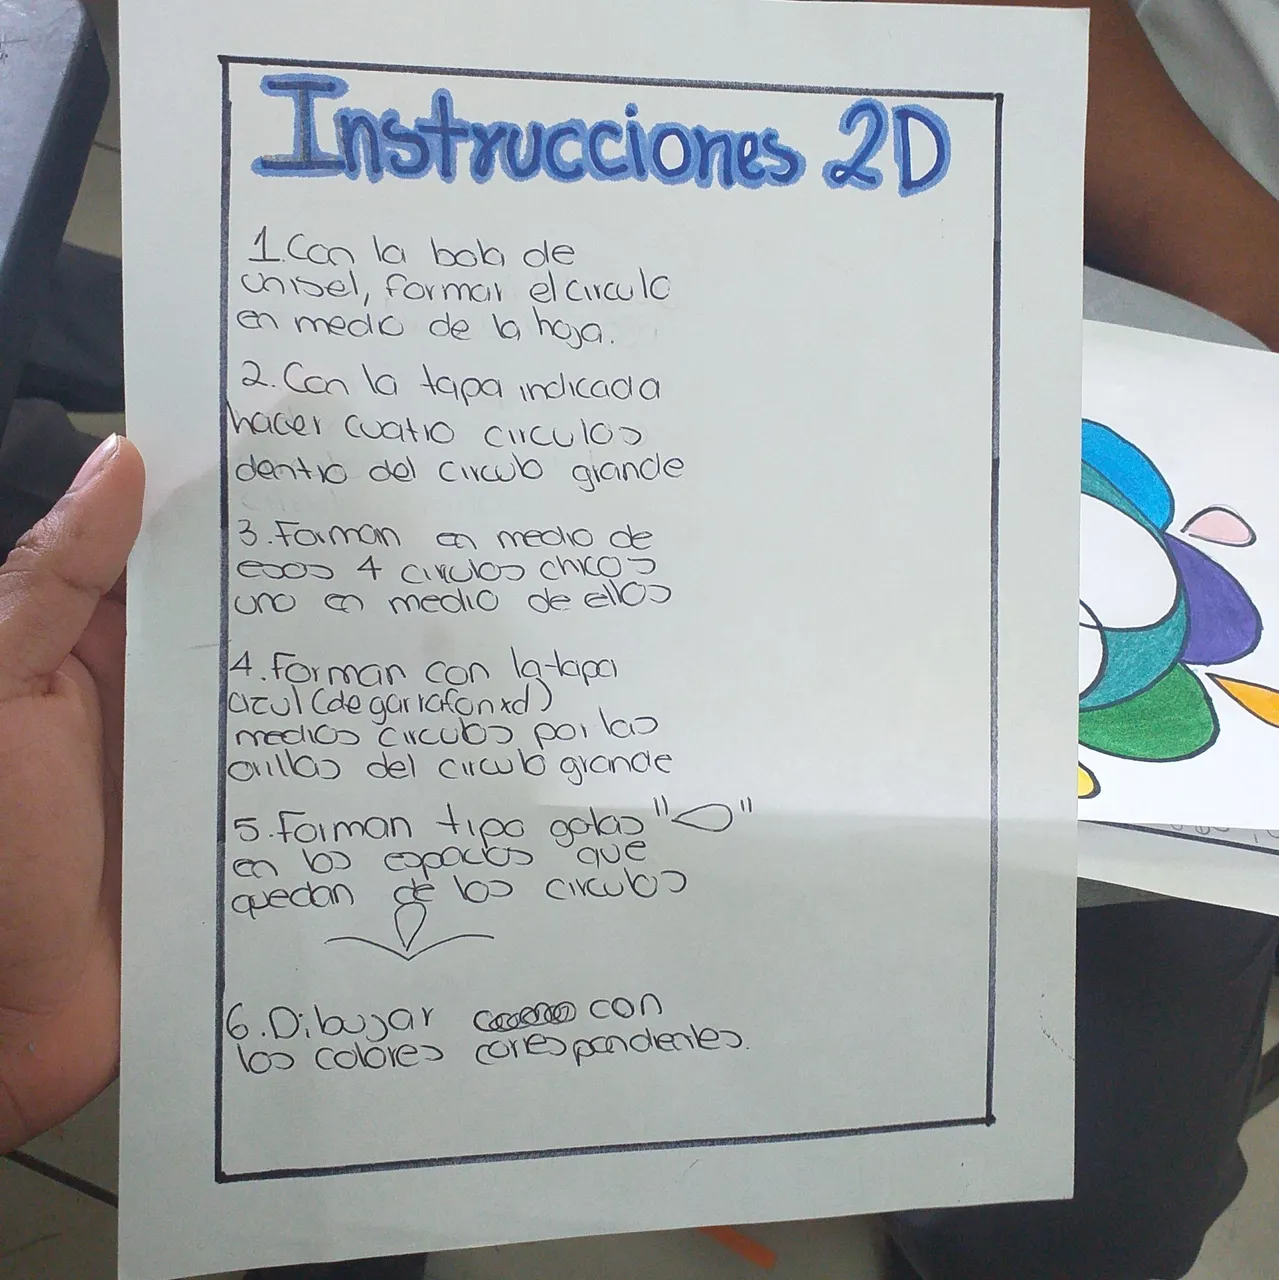 Instrucciones 2D
1. Con la bola de
unisel, formar el circulo
en medio de la hoja.
2. Con la tapa indicada
hacer cuatro circulos
dentro del circulo grande
3. Forman en medio de
esos 4 circulos chicos
uno en medio de ellos
4. Forman con la tapa
azul (de garrafon xd)
medios circulos por las
orillas del circulo grande
5. Forman tipo gotas " "
en los espacios que
quedan de los circulos
6. Dibujar con
los colores corespondientes.